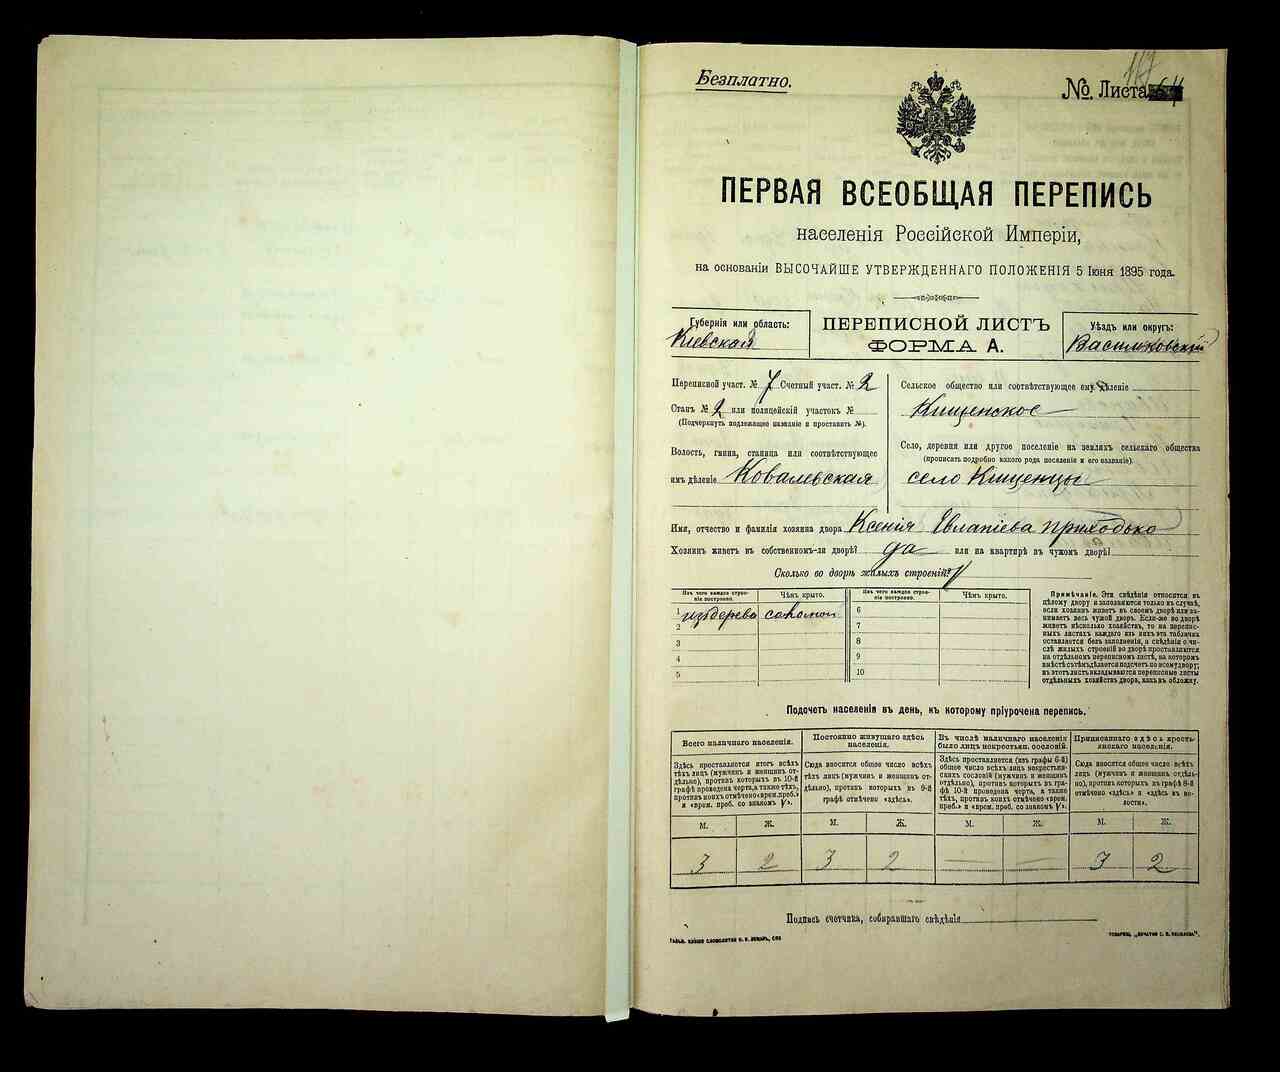 Безплатно.
№ Листа
ПЕРВАЯ ВСЕОБЩАЯ ПЕРЕПИСЬ
населенія Россійской Имперіи,
на основаніи ВЫСОЧАЙШЕ УТВЕРЖДЕННАГО ПОЛОЖЕНІЯ 5 Іюня 1895 года.
Губернія или область:
Кіевская
ПЕРЕПИСНОЙ ЛИСТЪ
ФОРМА А.
Уѣздъ или округъ:
Васильковскій
Переписной участ. № 7 Счетный участ. № 2
Станъ № 2 или полицейскій участокъ №
(Подчеркнуть подлежащее названіе и проставить №).
Волость, гмина, станица или соотвѣтствующее
имъ дѣленіе Ковалевская
Сельское общество или соотвѣтствующее ему дѣленіе
Кищенское
Село, деревня или другое поселеніе на земляхъ сельскаго общества
(прописать подробно какого рода поселеніе и его названіе).
село Кищенцы
Имя, отчество и фамилія хозяина двора Ксенія Евлапіева Приходько
Хозяинъ живетъ въ собственномъ-ли дворѣ? да или на квартирѣ въ чужомъ дворѣ?
Сколько во дворѣ жилыхъ строеній? 1
Изъ чего каждое строеніе построено. Чѣмъ крыто. Изъ чего каждое строеніе построено. Чѣмъ крыто.
1 издерева соломой 6
2 7
3 8
4 9
5 10
Примѣчаніе. Эти свѣдѣнія относятся къ
цѣлому двору и заполняются только въ случаѣ,
если хозяинъ живетъ въ своемъ дворѣ или занимаетъ
весь чужой дворъ. Если-же во дворѣ
живетъ нѣсколько хозяйствъ, то на переписныхъ
листахъ каждаго изъ нихъ эта табличка
оставляется безъ заполненія, а свѣдѣнія о числѣ
жилыхъ строеній во дворѣ проставляются
на отдѣльномъ переписномъ листѣ, на которомъ
вмѣстѣ съ тѣмъ дѣлается подсчетъ по всему двору;
въ этотъ листъ вкладываются переписные листы
отдѣльныхъ хозяйствъ двора, какъ въ обложку.
Подсчетъ населенія въ день, къ которому пріурочена перепись.
Всего наличнаго населенія.
Здѣсь проставляется итогъ всѣхъ
тѣхъ лицъ (мужчинъ и женщинъ отдѣльно),
противъ которыхъ въ 10-й
графѣ проведена черта, а также тѣхъ,
противъ коихъ отмѣчено «врем. преб.»
и «врем. преб. со знакомъ V».
Постоянно живущаго здѣсь
населенія.
Сюда вносится общее число всѣхъ
тѣхъ лицъ (мужчинъ и женщинъ отдѣльно),
противъ которыхъ въ 9-й
графѣ отмѣчено «здѣсь».
Въ числѣ наличнаго населенія
было лицъ некрестьян. сословій.
Здѣсь проставляется (изъ графы 6-й)
общее число всѣхъ лицъ некрестьянскихъ
сословій (мужчинъ и женщинъ
отдѣльно), противъ которыхъ въ графѣ
10-й проведена черта, а также
тѣхъ, противъ коихъ отмѣчено «врем.
преб.» и «врем. преб. со знакомъ V».
Приписаннаго здѣсь крестьянскаго
населенія.
Сюда вносится общее число всѣхъ
лицъ (мужчинъ и женщинъ отдѣльно),
противъ которыхъ въ графѣ 8-й
отмѣчено «здѣсь» и «здѣсь въ волости».
М. Ж. М. Ж. М. Ж. М. Ж.
3 2 3 2 — — 3 2
Подпись счетчика, собиравшаго свѣдѣнія